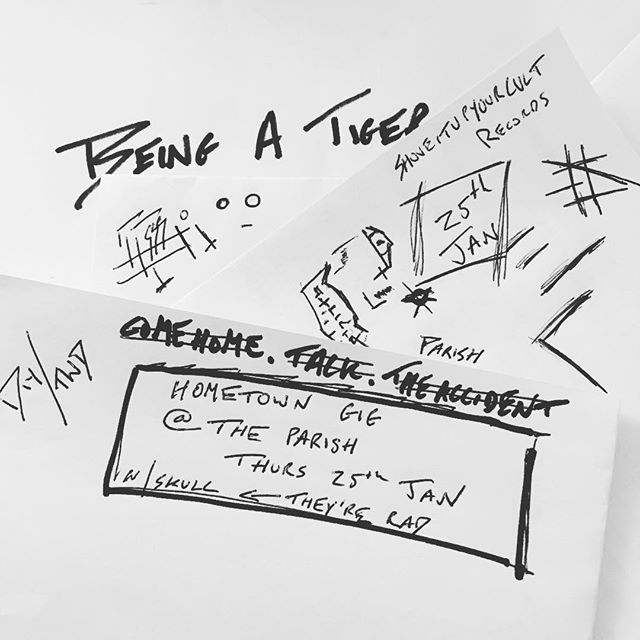 BEING A TIGER
SHOVEITUPYOURCULT
RECORDS
25th
JAN
PARISH
COME HOME. TALK. THE ACCIDENT
HOMETOWN GIG
@ THE PARISH
THURS 25th JAN
W/SKULL ← THEY'RE RAD